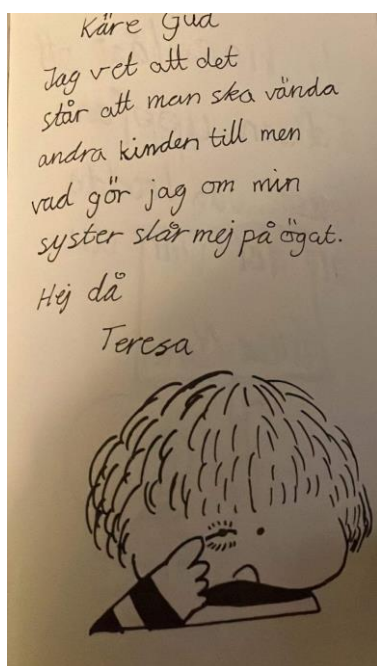 Käre Gud
Jag vet att det
står att man ska vända
andra kinden till men
vad gör jag om min
syster slår mej på ögat.
Hej då
Teresa